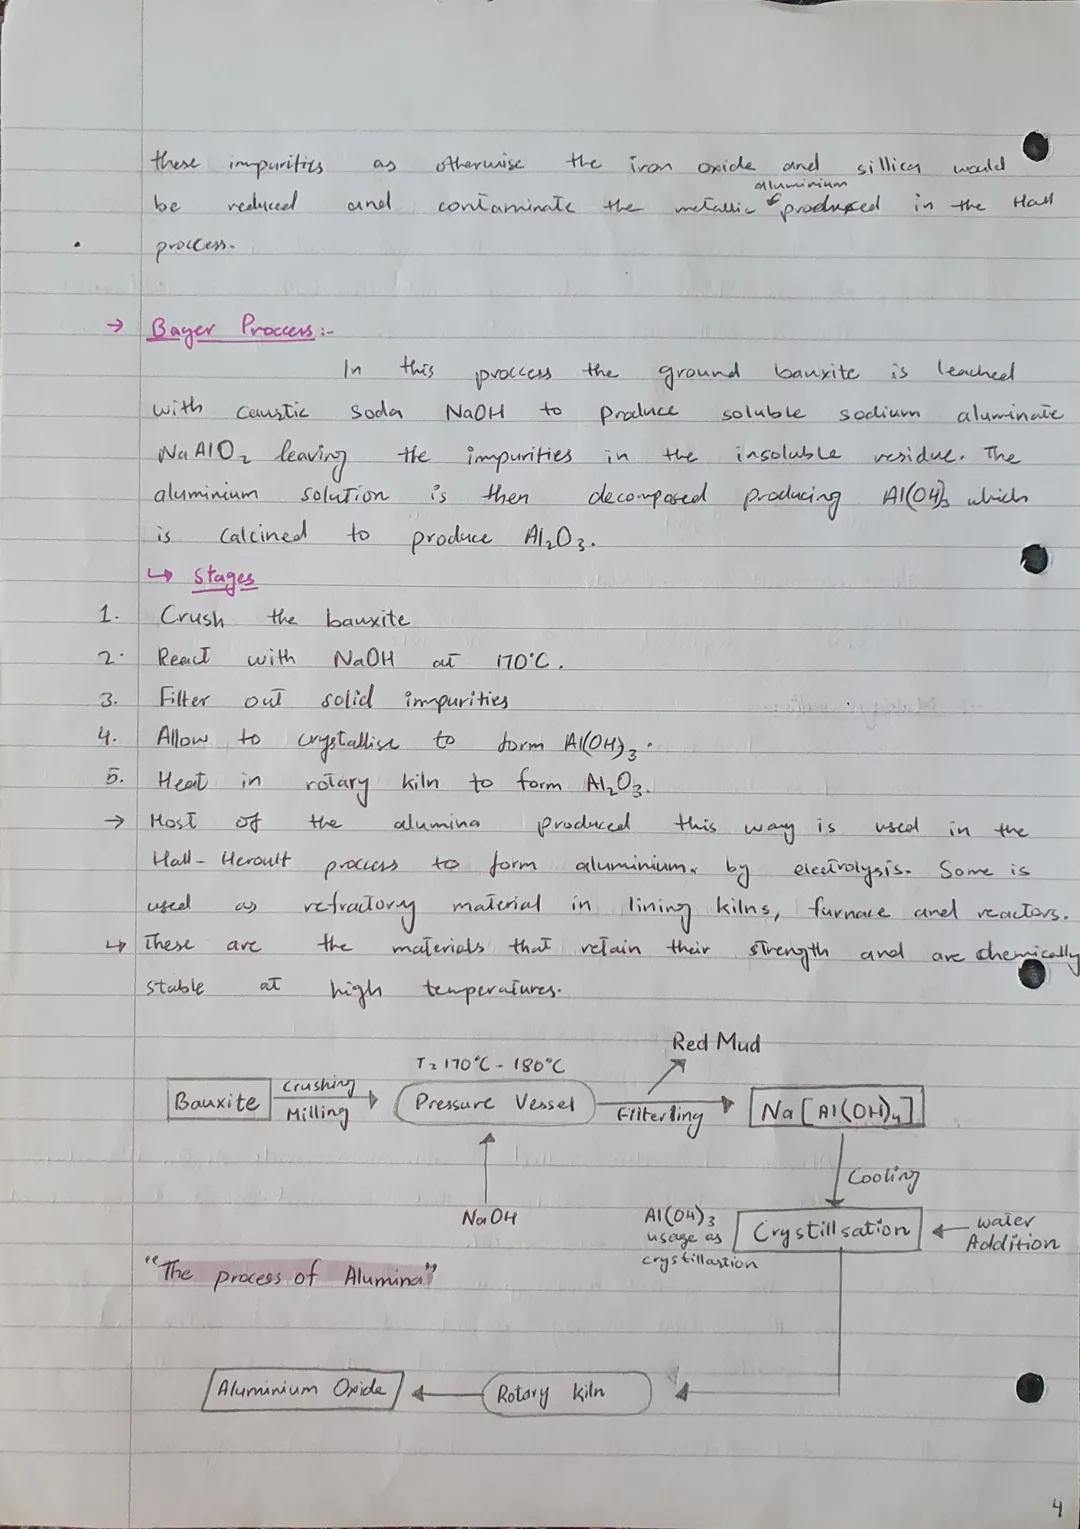 these impurities as otherwise the iron oxide and sillica would
aluminium
be reduced and contaminate the metallic produced in the Hall
proccess.
→ Bayer Proccess:-
In this proccess the ground bauxite is leached
with caustic soda NaOH to produce soluble sodium aluminate
NaAlO₂ leaving the impurities in the insoluble residue. The
aluminium solution is then decomposed producing Al(OH)₃ which
is calcined to produce Al₂O₃.
↳ Stages
1. Crush the bauxite
2. React with NaOH at 170°C.
3. Filter out solid impurities
4. Allow to crystallise to form Al(OH)₃.
5. Heat in rotary kiln to form Al₂O₃.
→ Most of the alumina produced this way is used in the
Hall-Heroult process to form aluminium. by electrolysis. Some is
used as refractory material in lining kilns, furnace and reactors.
↳ These are the materials that retain their strength and are chemically
stable at high temperatures.
Red Mud
T = 170°C - 180°C
Bauxite Crushing Milling → Pressure Vessel Filterling → Na[Al(OH)₄]
Cooling
NaOH
Al(OH)₃ usage as crystillastion
Crystillsation ← water Addition
"The process of Alumina"
Aluminium Oxide ← Rotary kiln ←
4